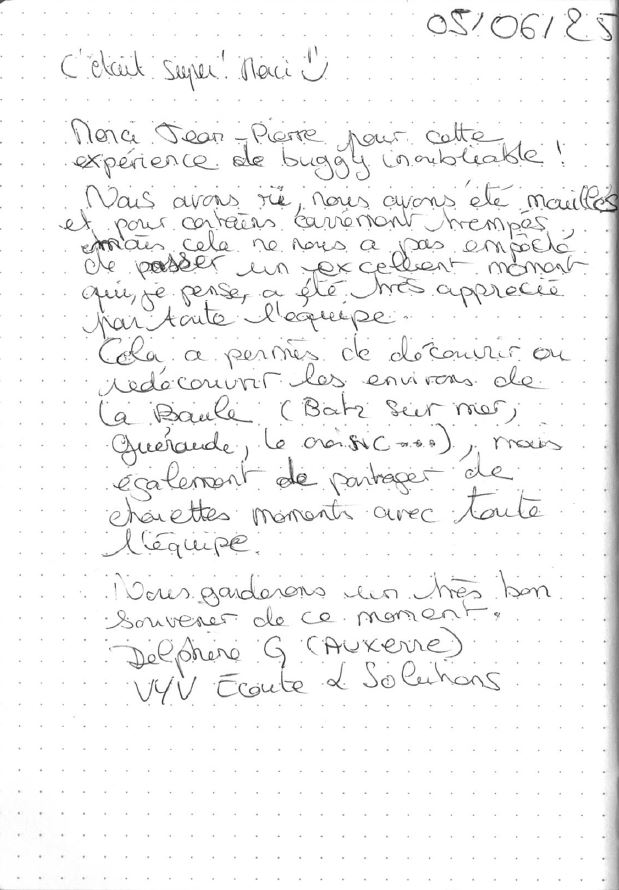 05/06/25
C'était super! Merci
Merci Jean-Pierre pour cette
expérience de buggy inoubliable !
Nous avons ri, nous avons été mouillés
et pour certains carrément trempés,
mais cela ne nous a pas empêché
de passer un excellent moment
qui, je pense, a été très apprécié
par toute l'équipe.
Cela a permis de découvrir ou
redécouvrir les environs de
la Baule (Batz sur mer,
Guérande, le croisic ...), mais
également de partager de
chouettes moments avec toute
l'équipe.
Nous garderons un très bon
souvenir de ce moment.
Delphine G (Auxerre)
VYV Écoute & Solutions